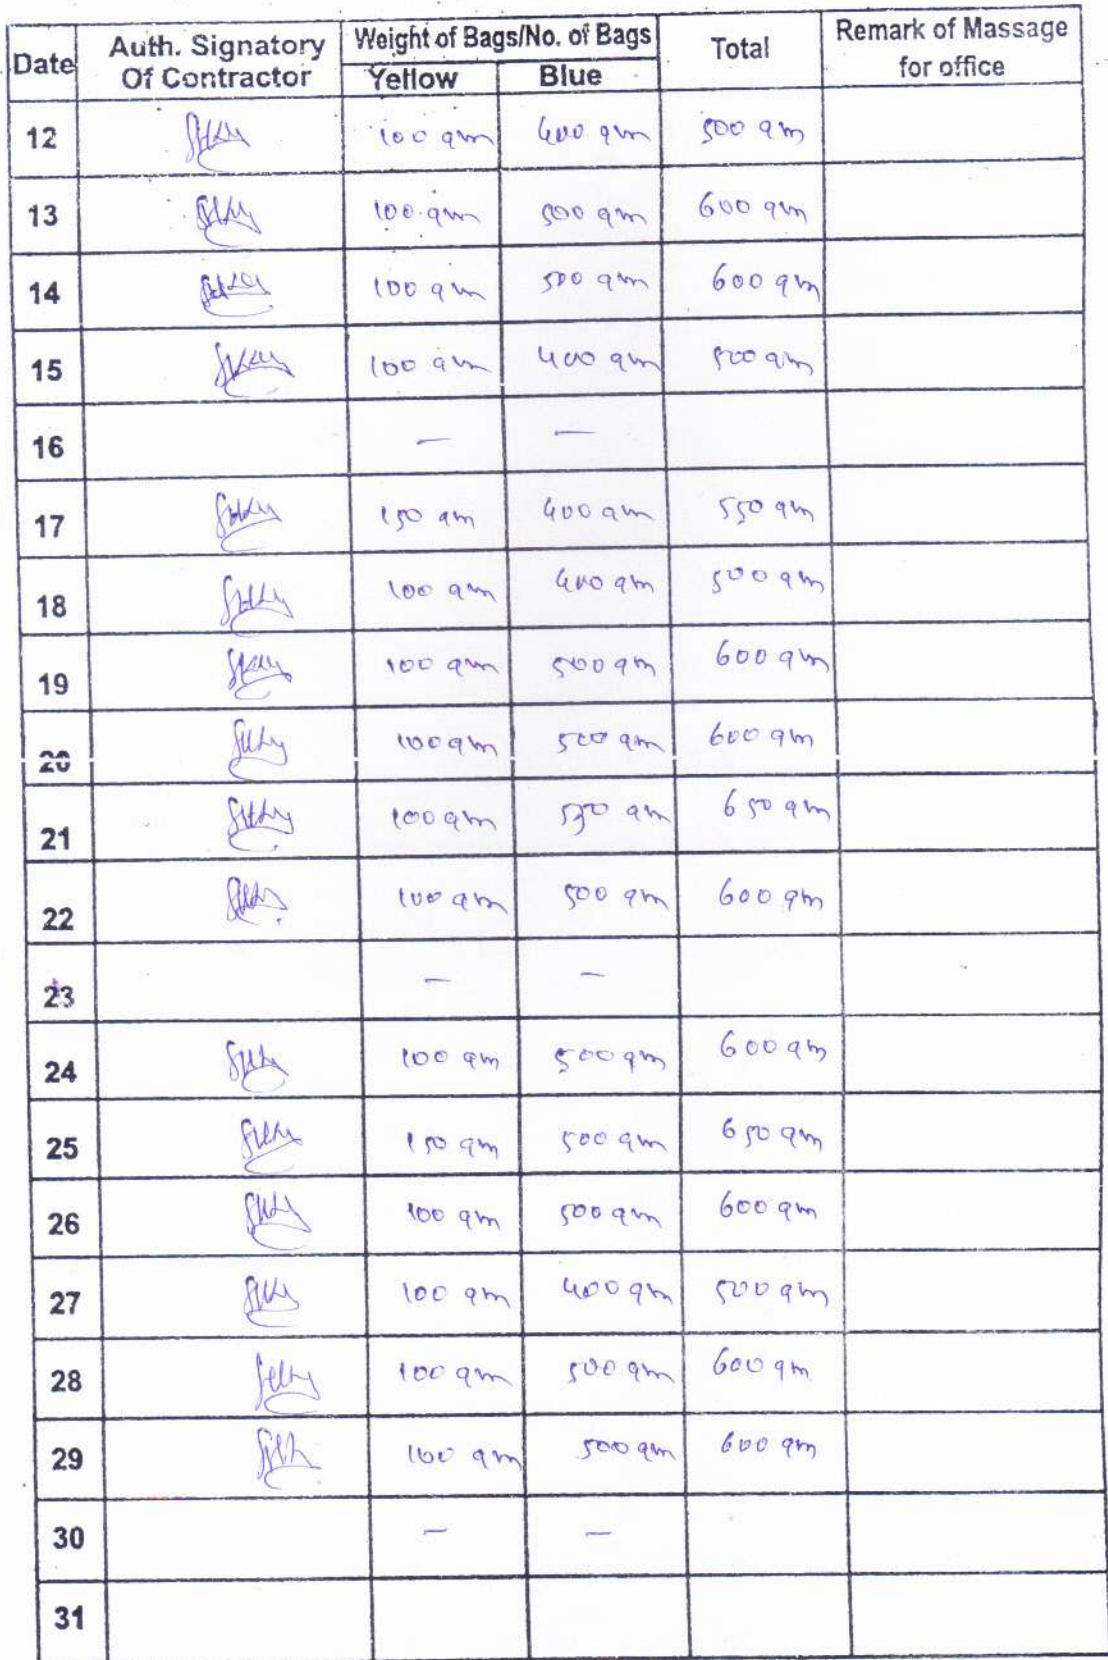 Date Auth. Signatory Of Contractor Weight of Bags/No. of Bags Total Remark of Massage for office
Yellow Blue
12 100 gm 400 gm 500 gm
13 100 gm 500 gm 600 gm
14 100 gm 500 gm 600 gm
15 100 gm 400 gm 500 gm
16 — —
17 150 gm 400 gm 550 gm
18 100 gm 400 gm 500 gm
19 100 gm 500 gm 600 gm
20 100 gm 500 gm 600 gm
21 100 gm 550 gm 650 gm
22 100 gm 500 gm 600 gm
23 — —
24 100 gm 500 gm 600 gm
25 150 gm 500 gm 650 gm
26 100 gm 500 gm 600 gm
27 100 gm 400 gm 500 gm
28 100 gm 500 gm 600 gm
29 100 gm 500 gm 600 gm
30 — —
31